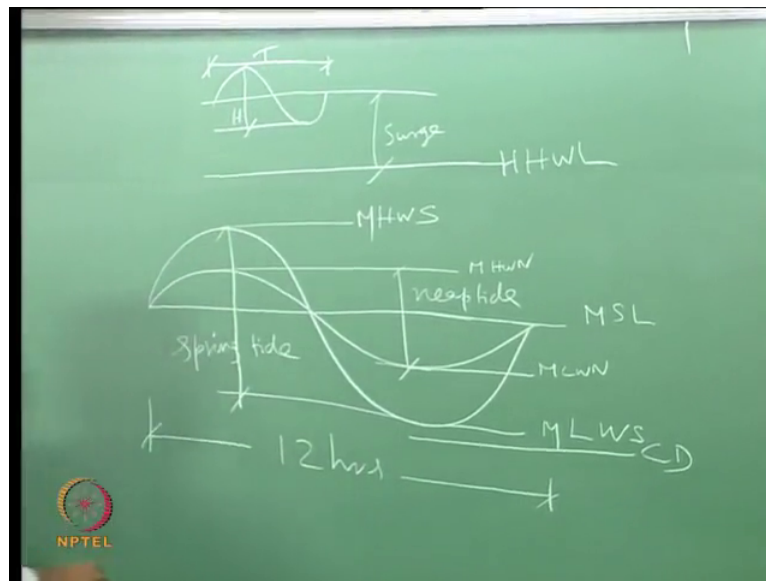 T
H
Surge
HHWL
MHWS
MHWN
neaptide
MSL
Spring tide
MLWN
MLWS
CD
12 hrs
NPTEL